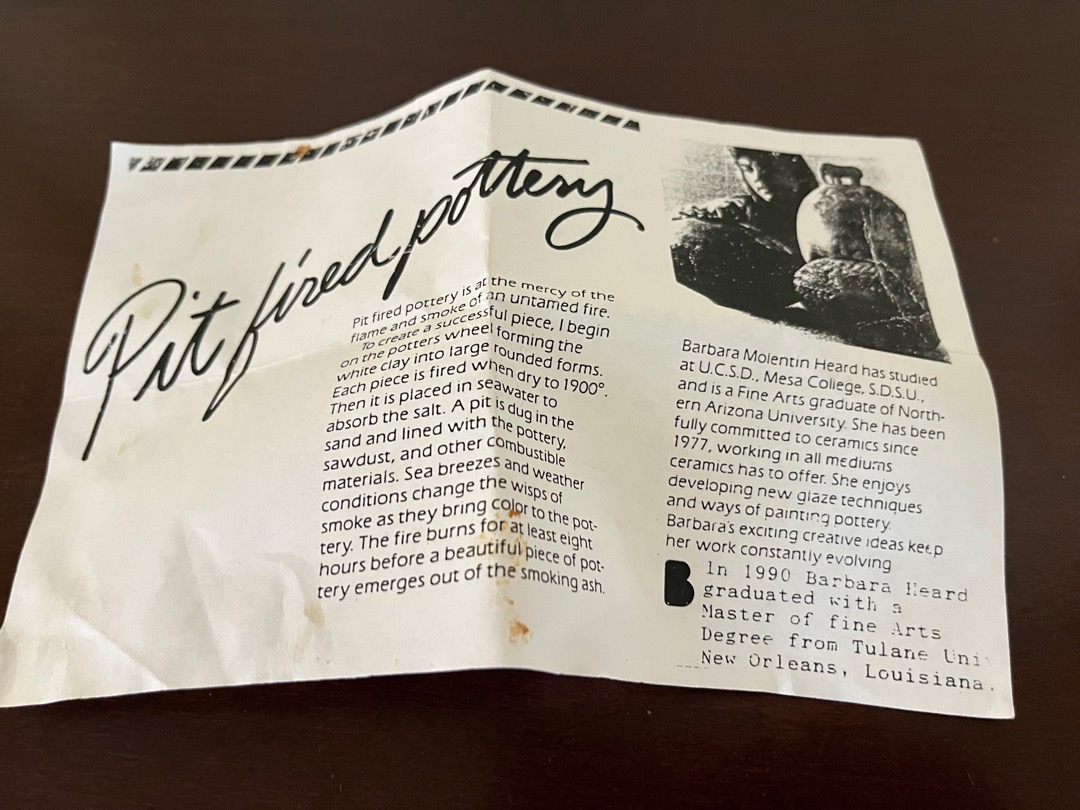 Pit fired pottery
Pit fired pottery is at the mercy of the
flame and smoke of an untamed fire.
To create a successful piece, I begin
on the potters wheel forming the
white clay into large rounded forms.
Each piece is fired when dry to 1900°.
Then it is placed in seawater to
absorb the salt. A pit is dug in the
sand and lined with the pottery,
sawdust, and other combustible
materials. Sea breezes and weather
conditions change the wisps of
smoke as they bring color to the pot-
tery. The fire burns for at least eight
hours before a beautiful piece of pot-
tery emerges out of the smoking ash.
Barbara Molentin Heard has studied
at U.C.S.D., Mesa College, S.D.S.U.,
and is a Fine Arts graduate of North-
ern Arizona University. She has been
fully committed to ceramics since
1977, working in all mediums
ceramics has to offer. She enjoys
developing new glaze techniques
and ways of painting pottery.
Barbara's exciting creative ideas keep
her work constantly evolving
B
In 1990 Barbara Heard
graduated with a
Master of fine Arts
Degree from Tulane Uni
New Orleans, Louisiana.